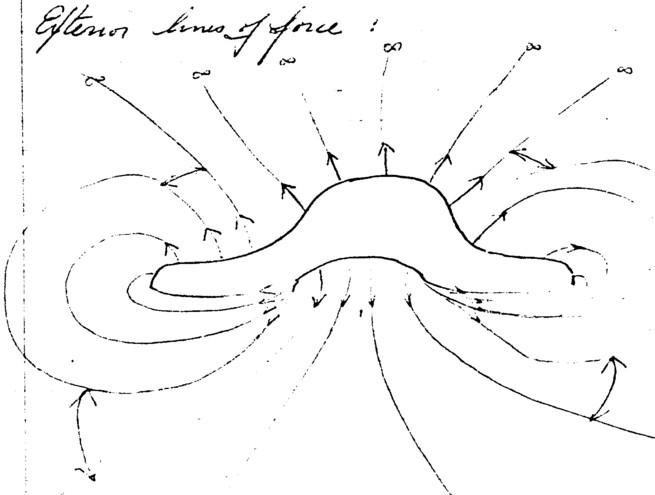 Exterior lines of force :
∞ ∞ ∞ ∞ ∞ ∞